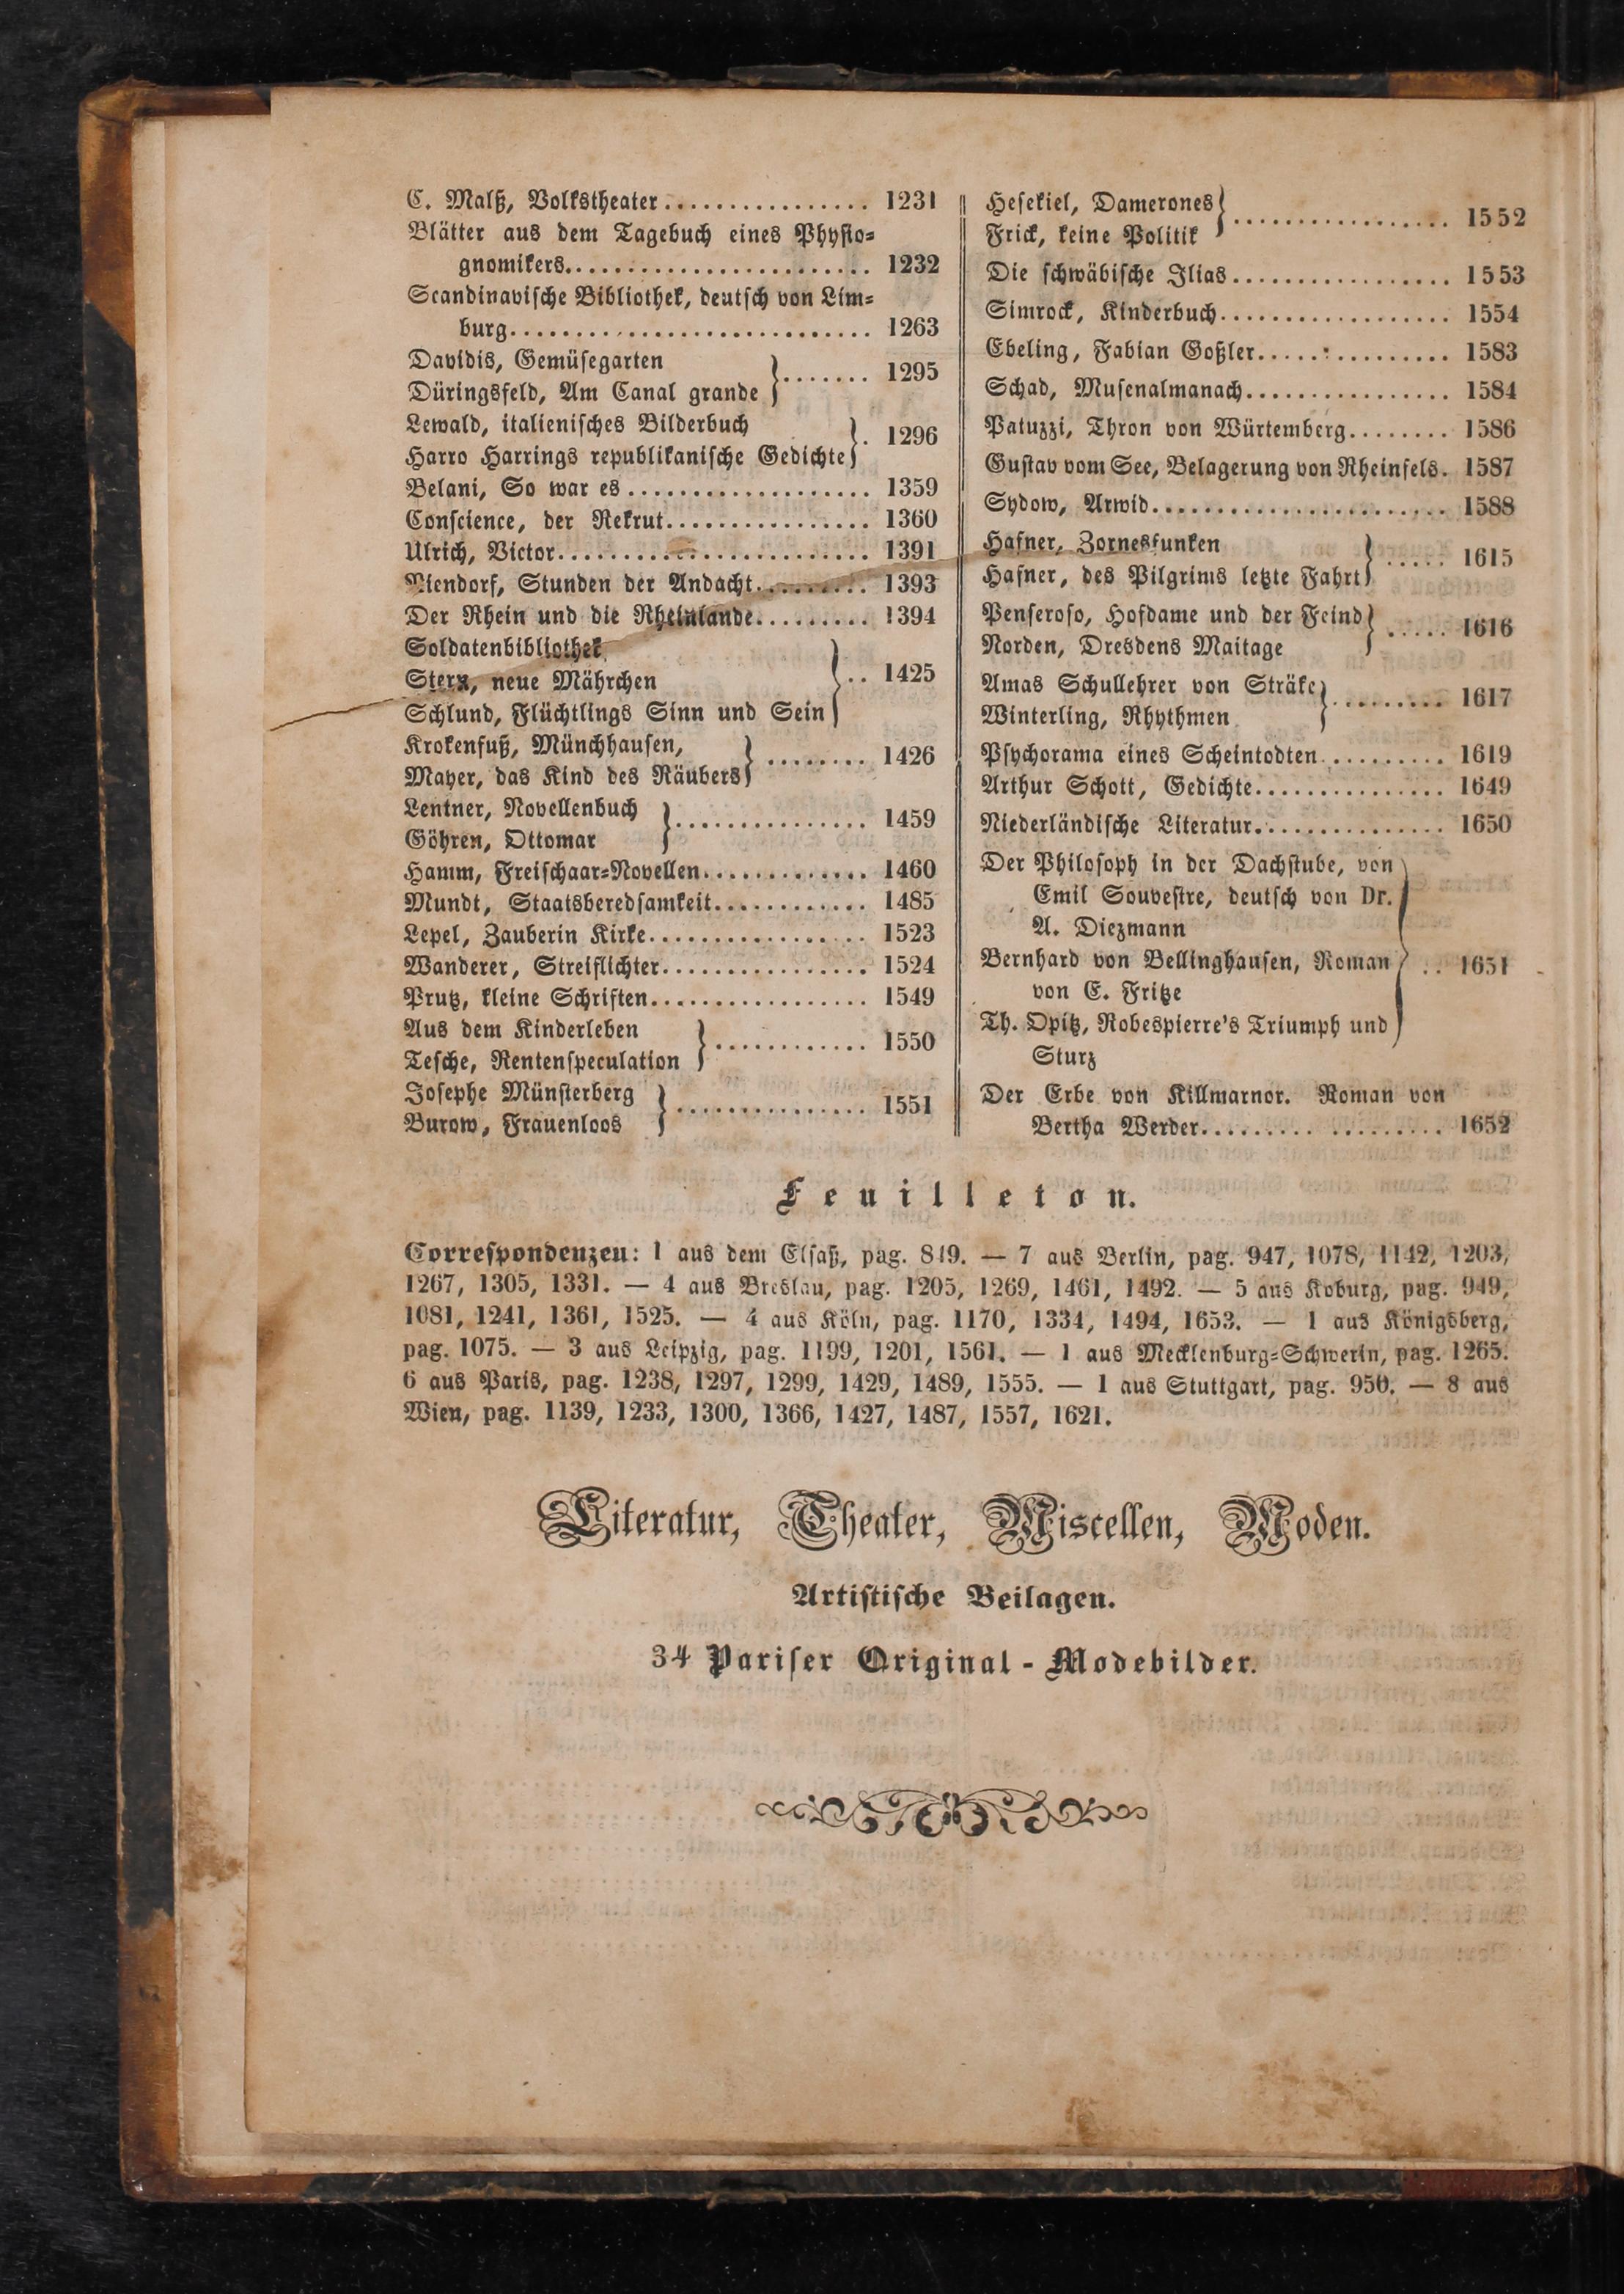 C. Malß, Volkstheater................ 1231
Blätter aus dem Tagebuch eines Physio=
gnomikers........................ 1232
Scandinavische Bibliothek, deutsch von Lim=
burg............................ 1263
Davidis, Gemüsegarten
Düringsfeld, Am Canal grande } ....... 1295
Lewald, italienisches Bilderbuch
Harro Harrings republikanische Gedichte } . 1296
Belani, So war es ................... 1359
Conscience, der Rekrut................ 1360
Ulrich, Victor......................... 1391
Niendorf, Stunden der Andacht......... 1393
Der Rhein und die Rheinlande......... 1394
Soldatenbibliothek
Stern, neue Mährchen
Schlund, Flüchtlings Sinn und Sein } .. 1425
Krokenfuß, Münchhausen,
Mayer, das Kind des Räubers } ........ 1426
Lentner, Novellenbuch
Göhren, Ottomar } ............... 1459
Hamm, Freischaar=Novellen............. 1460
Mundt, Staatsberedsamkeit............ 1485
Lepel, Zauberin Kirke................. 1523
Wanderer, Streiflichter................ 1524
Prutz, kleine Schriften................. 1549
Aus dem Kinderleben
Tesche, Rentenspeculation } ............ 1550
Josephe Münsterberg
Burow, Frauenloos } ............... 1551
Hesekiel, Damerones
Frick, keine Politik } ................. 1552
Die schwäbische Ilias................. 1553
Simrock, Kinderbuch.................. 1554
Ebeling, Fabian Goßler............... 1583
Schad, Musenalmanach................ 1584
Patuzzi, Thron von Würtemberg........ 1586
Gustav vom See, Belagerung von Rheinfels. 1587
Sydow, Arwid....................... 1588
Hafner, Zornesfunken
Hafner, des Pilgrims letzte Fahrt } ..... 1615
Penseroso, Hofdame und der Feind
Norden, Dresdens Maitage } ..... 1616
Amas Schullehrer von Sträke
Winterling, Rhythmen } ......... 1617
Psychorama eines Scheintodten.......... 1619
Arthur Schott, Gedichte............... 1649
Niederländische Literatur............... 1650
Der Philosoph in der Dachstube, von
Emil Souvestre, deutsch von Dr.
A. Diezmann
Bernhard von Bellinghausen, Roman } .. 1651
von E. Fritze
Th. Opitz, Robespierre's Triumph und
Sturz
Der Erbe von Killmarnor. Roman von
Bertha Werder................... 1652
Feuilleton.
Correspondenzen: 1 aus dem Elsaß, pag. 849. — 7 aus Berlin, pag. 947, 1078, 1142, 1203,
1267, 1305, 1331. — 4 aus Breslau, pag. 1205, 1269, 1461, 1492. — 5 aus Koburg, pag. 949,
1081, 1241, 1361, 1525. — 4 aus Köln, pag. 1170, 1334, 1494, 1653. — 1 aus Königsberg,
pag. 1075. — 3 aus Leipzig, pag. 1199, 1201, 1561. — 1 aus Mecklenburg=Schwerin, pag. 1265.
6 aus Paris, pag. 1238, 1297, 1299, 1429, 1489, 1555. — 1 aus Stuttgart, pag. 950. — 8 aus
Wien, pag. 1139, 1233, 1300, 1366, 1427, 1487, 1557, 1621.
Literatur, Theater, Miscellen, Moden.
Artistische Beilagen.
34 Pariser Original-Modebilder.